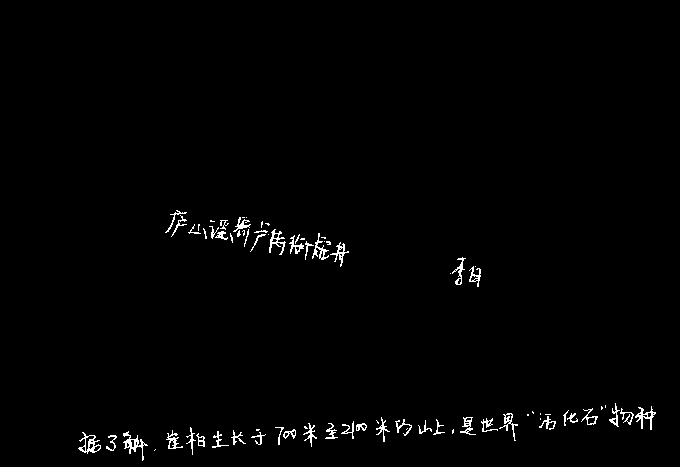 庐山谣寄卢侍御虚舟
李白
据了解，崖柏生长于700米至2100米的山上，是世界“活化石”物种